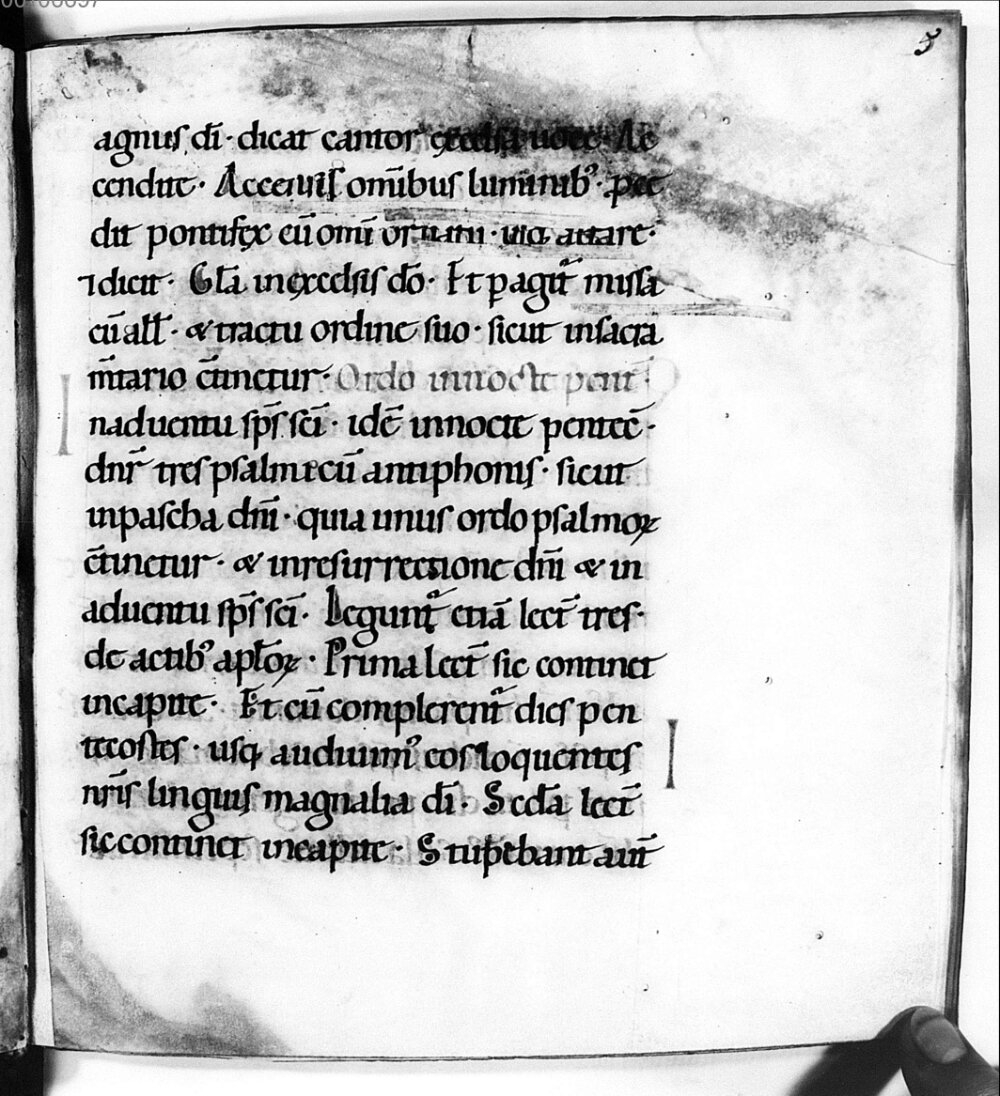 5
agnus dī · dicat cantor excelsa uoce · Ac
cendite · Accensis om̄ibus luminibꝰ · ꝓce
dit pontifex cū omī ornatu · ante altare ·
⁊ dicit · Gl̄a in excelsis dō · Et ꝑagit᷑ missa
cū all̄ · & tractu ordine suo · sicut in sacra
m̄tario ɔ̄tinetur · Ordo in nocte pent̄ ·
I
naduentu sp̄s sc̄i · idē in nocte pentec̄ ·
dnr̄ tres psalmi cū antiphonis · sicut
in pascha dn̄i · quia unus ordo psalmoꝝ
c̄tinetur · & in resurrectione dn̄i & in
aduentu sp̄s sc̄i · Legunt᷑ etiā lect̄ tres ·
de actibꝰ apl̄oꝝ · Prima lect̄ sic continet
in capite · Et cū complerent᷑ dies pen
tecostes · usq; audiuimꝰ eos loquentes
nr̄is linguis magnalia dī · Scd̄a lect̄
sic continet in capite · Stupebant aut̄